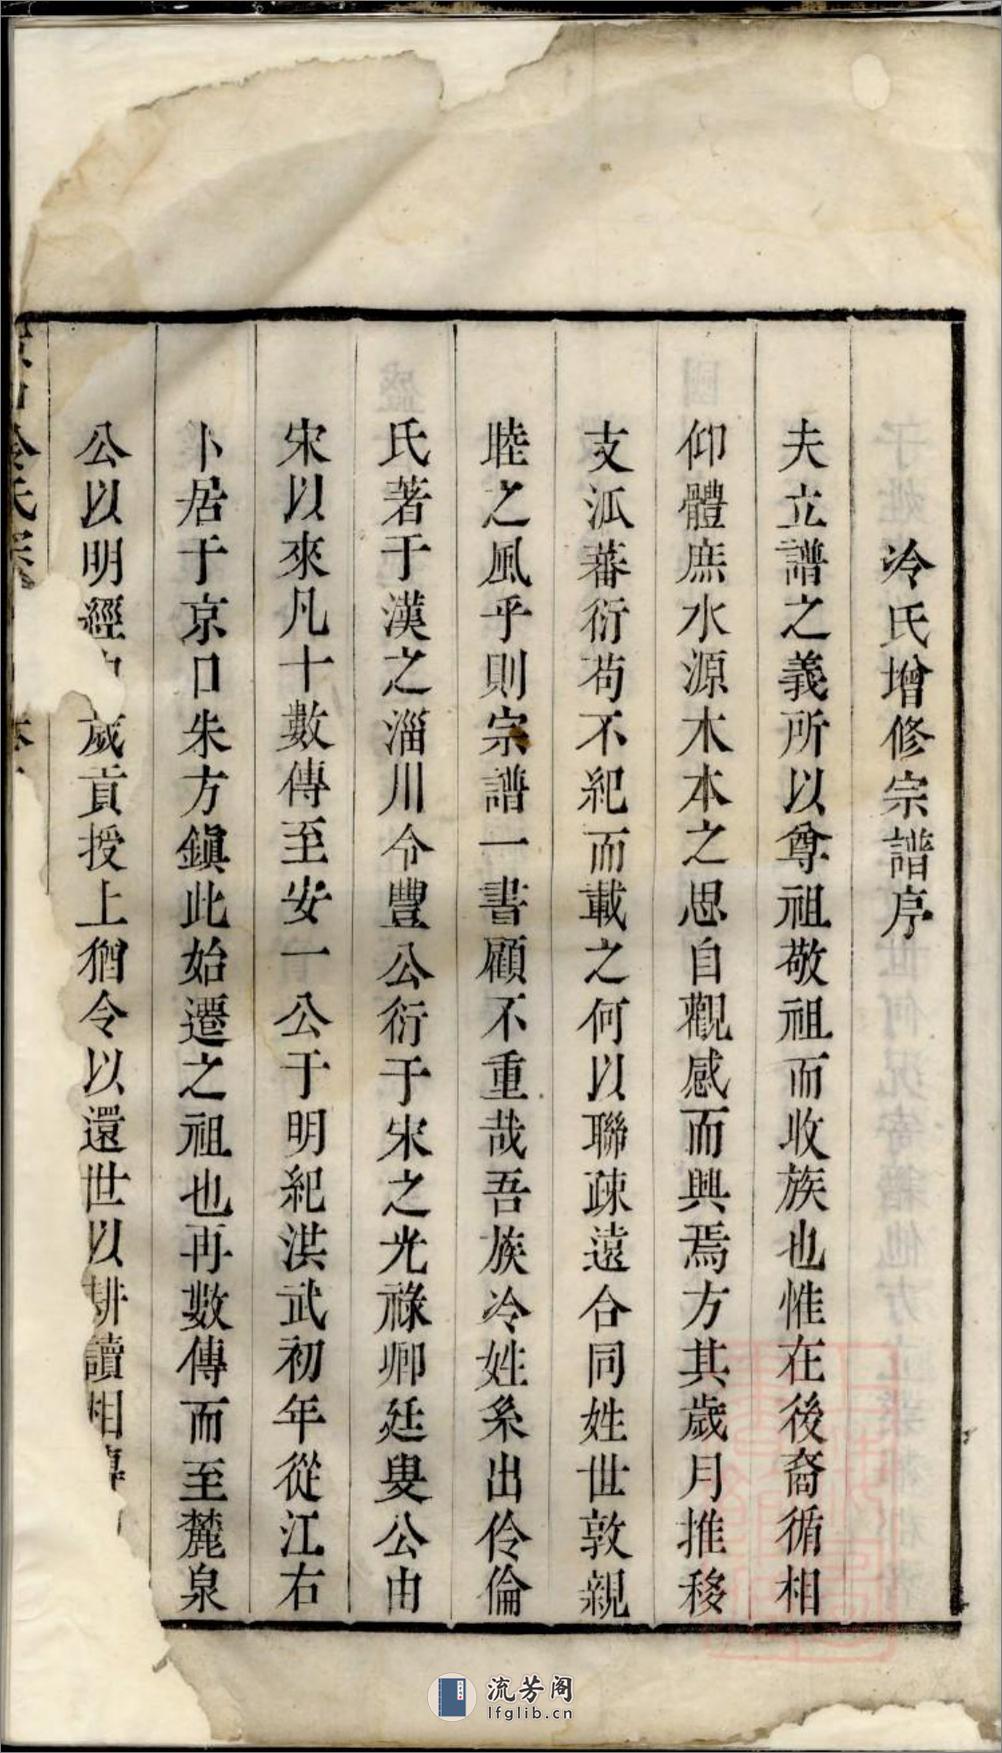 冷氏增修宗譜序
夫立譜之義所以尊祖敬祖而收族也惟在後裔循相
仰體庶水源木本之思自觀感而興焉方其歲月推移
支泒蕃衍茍不紀而載之何以聯疎遠合同姓世敦親
睦之風乎則宗譜一書顧不重哉吾族冷姓系出伶倫
氏著于漢之淄川令豐公衍于宋之光祿卿廷叟公由
宋以來凡十數傳至安一公于明紀洪武初年從江右
卜居于京口朱方鎮此始遷之祖也再數傳而至麓泉
公以明經 歲貢授上猶令以還世以耕讀相傳
冷氏宗
流芳阁
lfglib.cn